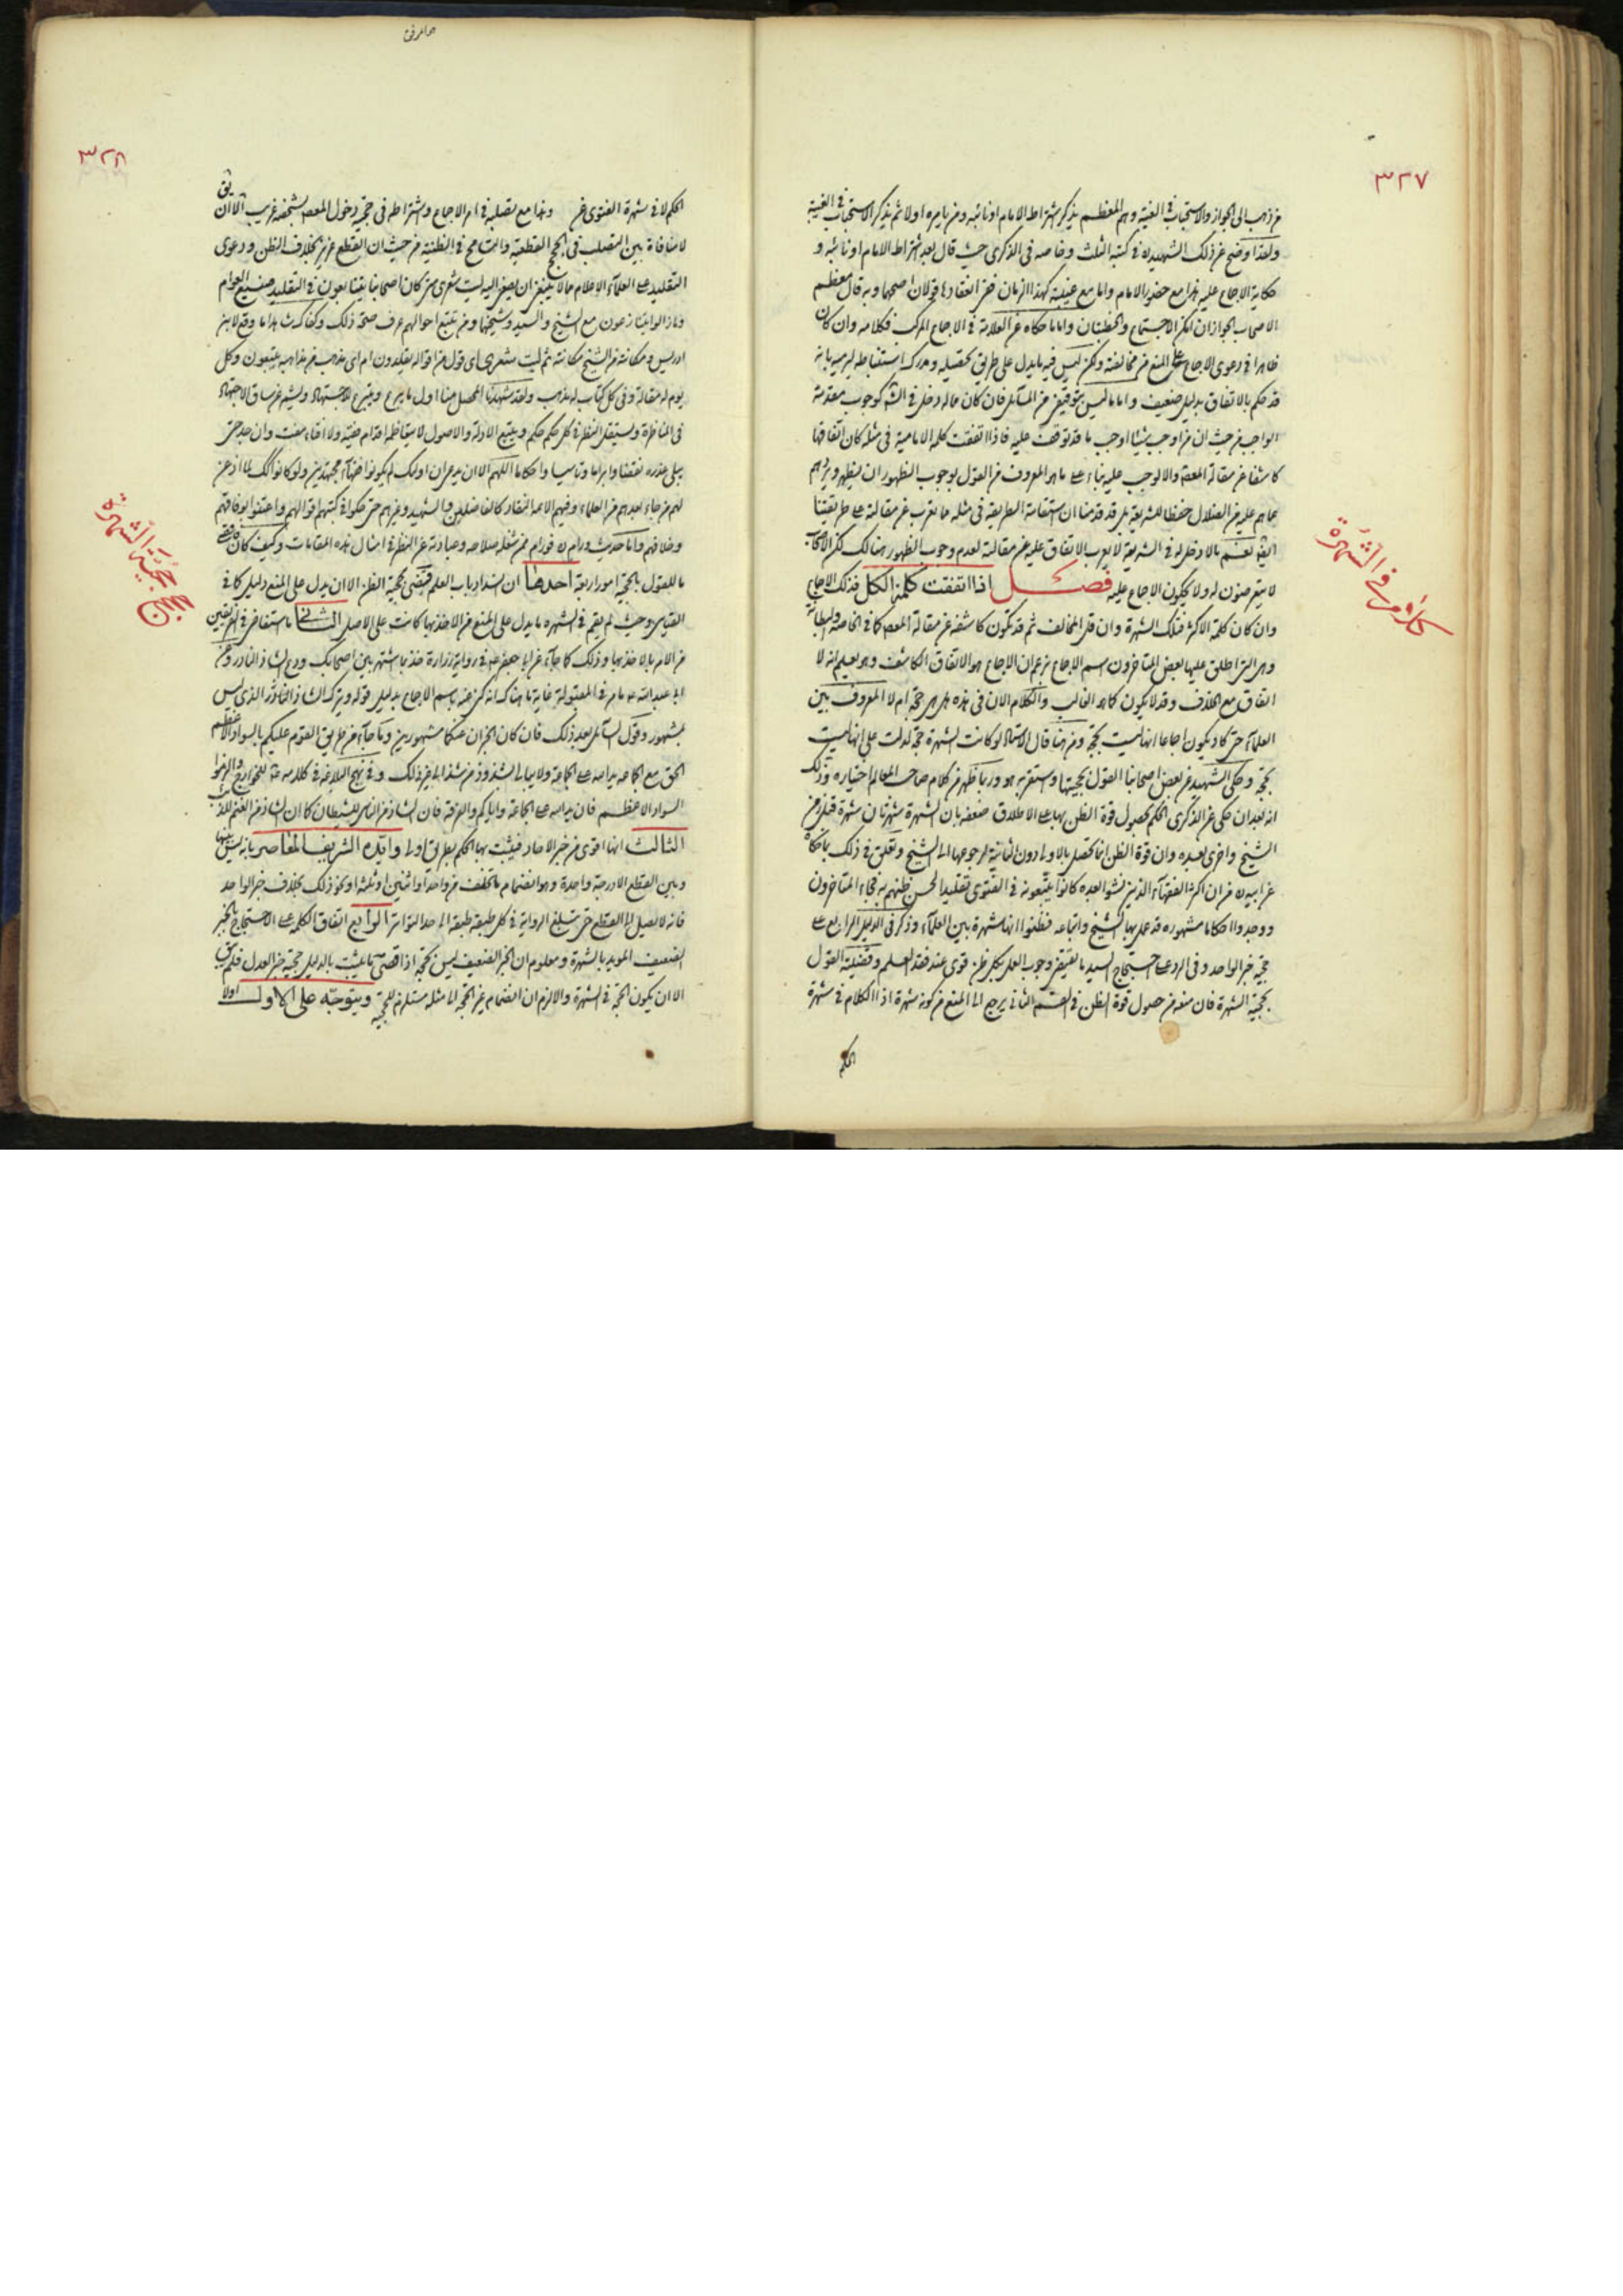 ٣٢٧
من ذهب الى الجواز والاستحباب في الغيبة وهم المعظم يذكر اشتراط الامام او نائبه ومن يامره اولا ثم يذكر الاستحباب في الغيبة
ولقد اوضح عن ذلك الشهيد في كتبه الثلث وخاصة في الذكرى حيث قال بعد اشتراط الامام او نائبه و
حكاية الاجماع عليه هذا مع حضور الامام واما مع غيبته كهذا الزمان ففي انعقادها قولان اصحهما وبه قال معظم
الاصحاب الجواز ان امكن الاجتماع والخطبتان واما ما حكاه عن العلامة في الاجماع المركب فكلامه وان كان
ظاهرا في دعوى الاجماع على المنع من مخالفته ولكن ليس فيه ما يدل على طريق تحصيله ومدركه
قد حكم بالاتفاق بدليل ضعيف واما ما ليس بتوقيفي من المسائل فان كان مما له دخل في الشرع كوجوب مقدمة
الواجب من حيث ان من اوجب شيئا اوجب ما قد توقف عليه فاذا اتفقت كلمة الامامية في مثله كان اتفاقها
كاشفا عن مقالة المعصوم والا لوجب عليه بناء على ما هو المعروف من القول بوجوب الظهور ان يظهر ويردهم
عما هم عليه من الضلال حفظا للشريعة بل قد قدمنا ان استقامة الطريقة في مثله ما تعرب عن مقالته على طريقتنا
ما لا دخل له في الشريعة لا يعرب الاتفاق عليه عن مقالته لعدم وجوب الظهور هنالك لكن الاصحاب
لا يتعرضون له ولا يحكون الاجماع عليه فصل اذا اتفقت كلمة الكل فذلك الاجماع
وان كان كلمة الاكثر فتلك الشهرة وان قل المخالف ثم قد تكون كاشفة عن مقالة المعصوم كما في الخاصة والبطانة
وهي التي اطلق عليها بعض المتاخرون اسم الاجماع بزعم ان الاجماع هو الاتفاق الكاشف وهو يعلم انه لا
اتفاق مع الخلاف وقد لا يكون كما هو الغالب والكلام الان في هذه هل هي حجة ام لا المعروف بين
العلماء حتى كاد يكون اجماعا انها ليست بحجة ومن هنا قال الاستاد لو كانت الشهرة حجة لدلت على انها ليست
بحجة وحكى الشهيد عن بعض اصحابنا القول بحجيتها واستقر به هو وربما ظهر من كلام صاحب المعالم اختياره وذلك
انه بعد ان حكى عن الذكرى الحكم بحصول قوة الظن بها على الاطلاق ضعفه بان الشهرة شهرتان شهرة قبل زمن
الشيخ واخرى بعده وان قوة الظن انما تحصل بالاولى دون الثانية لرجوعها الى الشيخ وتعلق في ذلك بما حكاه
عن ابيه من ان اكثر الفقهاء الذين نشوا بعده كانوا يتبعونه في الفتوى تقليدا لحسن ظنهم به فجاء المتاخرون
ووجدوا احكاما مشهورة قد عمل بها الشيخ واتباعه فظنوا انها شهرة بين العلماء وذكر في الدليل الرابع على
حجية خبر الواحد وفي الرد على احتجاج السيد ما يقتضي وجوب العمل بكل ظن قوي عند فقد العلم وقضيته القول
بحجية الشهرة فان منعه من حصول قوة الظن في القسم الثاني يرجع الى المنع من كونه شهرة اذ الكلام في شهرة
الحكم
كلام في الشهرة
٣٢٨
الحكم لا في شهرة الفتوى عن وهذا مع تصلبه في امر الاجماع واشتراطه في حجيته دخول المعصوم بشخصه غريب الا ان يق
لا منافاة بين التصلب في الحجج القطعية والتسامح في الظنية من حيث ان القطع عزيز بخلاف الظن ودعوى
التقليد على العلماء الاعلام مما لا ينبغي ان يصغى اليه ليت شعري متى كان اصحابنا يتتابعون في التقليد صنيع العوام
وما زالوا يتنازعون مع الشيخ والسيد وشيخهما ومن تتبع احوالهم عرف صحة ذلك وكفاك شاهدا ما وقع لابن
ادريس ومكانته من الشيخ مكانته ثم ليت شعري اي قول من اقواله يقلدون ام اي مذهب من مذاهبه يتبعون وكل
يوم له مقالة وفي كل كتاب له مذهب ولقد شهدنا المحصل منا اول ما يبرع
في المناظرة ويستقل النظر في كل حكم حكم ويتتبع الادلة والاصول
يبلي عذره نقضا وابراما وتاسيسا واحكاما اللهم الا ان يدعي ان اولئك لم يكونوا فقهاء مجتهدين ولو كانوا كذلك لما اذعن
لهم من جاء بعدهم من العلماء وفيهم الائمة النقاد كالفاضلين والشهيد وغيرهم حتى حكوا في كتبهم اقوالهم واعتنوا بوفاقهم
وخلافهم واما حديث ورام فورام ممن شغله صلاحه وعبادته عن النظر في امثال هذه المقامات وكيف كان
ما للقول بالحجية امور اربعة احدها ان انسداد باب العلم قضى بحجية الظن الا ان يدل على المنع دليل كما في
القياس وحيث لم يقم في الشهرة ما يدل على المنع من الاخذ بها كانت على الاصل الثاني ما استفاض
من الامر بالاخذ بها وذلك كما جاء عن ابي جعفر في رواية زرارة خذ بما اشتهر بين اصحابك ودع الشاذ النادر وعن
ابي عبدالله مما مر في المقبولة غاية ما هناك انه كنى عنه باسم الاجماع بدليل قوله ويترك الشاذ النادر الذي ليس
بمشهور وقول السائل بعد ذلك فان كان الخبران عنكما مشهورين وما جاء من طريق القوم عليكم بالسواد الاعظم
الحق مع الجماعة يد الله على الجماعة ولا يبالي بشذوذ من شذ الى غير ذلك وفي نهج البلاغة في كلام له للخوارج والزموا
السواد الاعظم فان يد الله على الجماعة واياكم والفرقة فان الشاذ من الناس للشيطان كما ان الشاذ من الغنم للذئب
الثالث انها اقوى من خبر الاحاد فيثبت بها الحكم بطريق اولى وايده الشريف المعاصر بانه ليس بينها
وبين القطع الا درجة واحدة وهو انضمام ما تخلف من واحد او اثنين او ثلثة او نحو ذلك بخلاف خبر الواحد
فانه لا يصل الى القطع حتى تبلغ الرواية في كل طبقة طبقة الى حد التواتر الرابع اتفاق الكلمة على الاحتجاج بالخبر
الضعيف المويد بالشهرة ومعلوم ان الخبر الضعيف ليس بحجة اذ اقصى ما يثبت بالدليل حجية خبر العدل فلم يبق
الا ان يكون الحجة في الشهرة والا لزم ان انضمام غير الحجة الى مثله مستلزم للحجية ويتوجه على الاول اولا
حجج حجية الشهرة